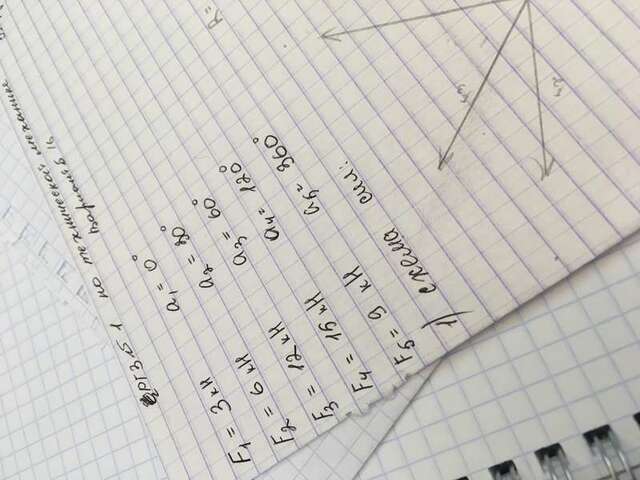 РГЗ № 1 по технической механике
Вариант 16
F₁ = 3 кН a₁ = 0°
F₂ = 6 кН a₂ = 30°
F₃ = 12 кН a₃ = 60°
F₄ = 15 кН a₄ = 120°
F₅ = 9 кН a₅ = 360°
1) схема сил:
R =
F3
F2